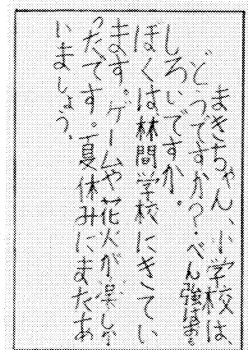 まきちゃん、小学校は、
どうですか？べん強はおも
しろいですか。
ぼくは林間学校にきてい
ます。ゲームや花火が楽しか
ったです。夏休みにまたあ
いましょう。